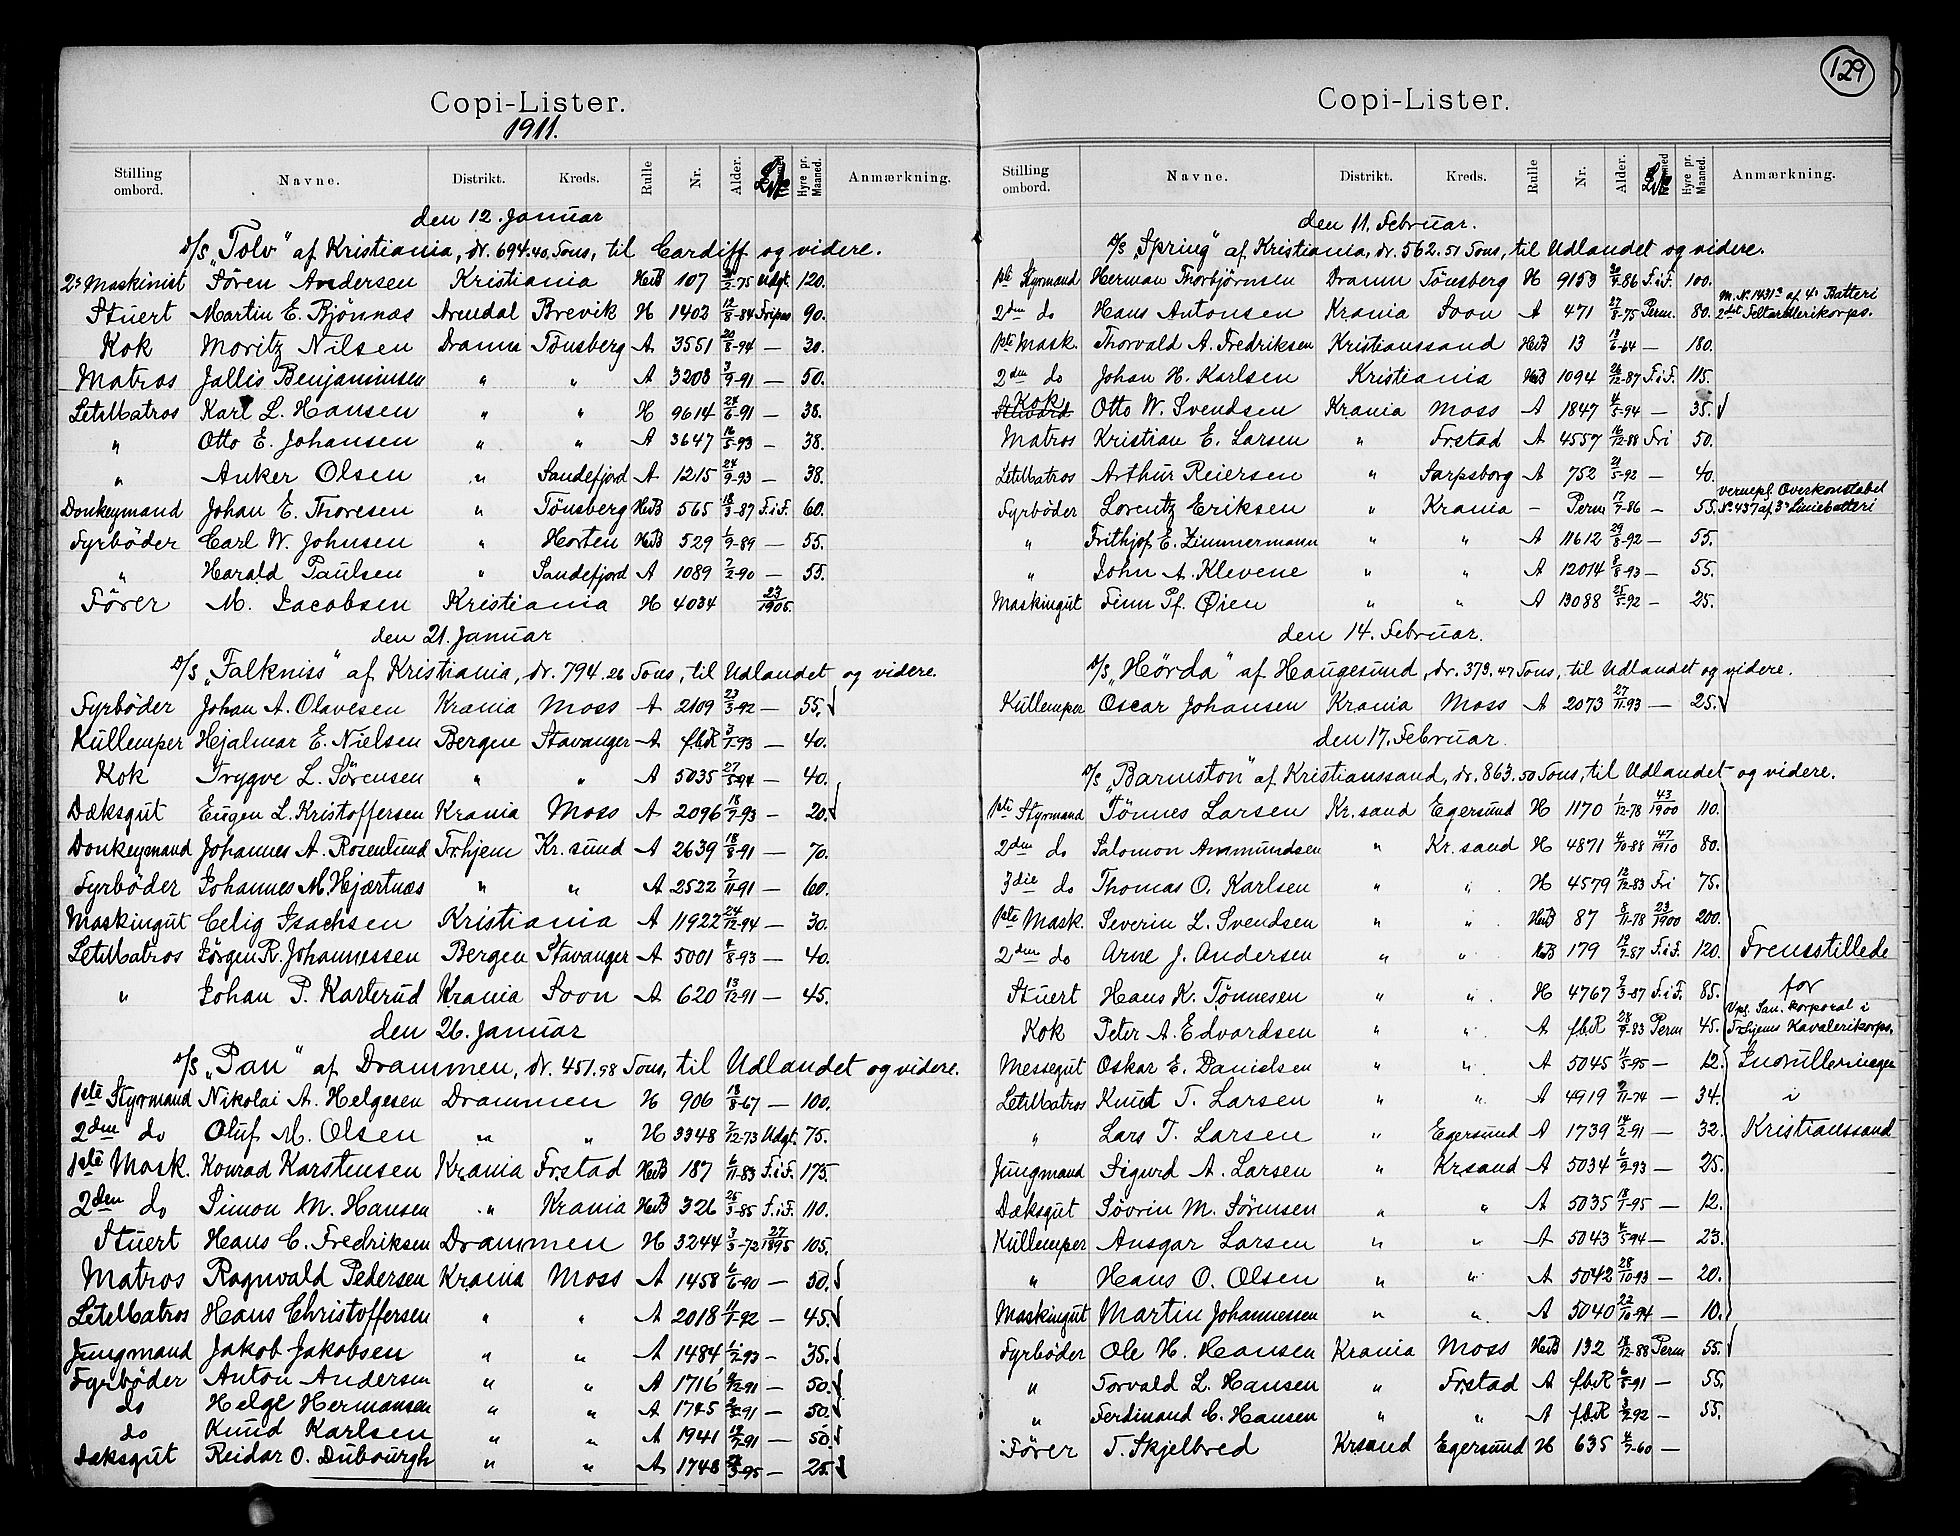 129
Copi-Lister.
1911.
Stilling ombord. Navne. Distrikt. Kreds. Rulle Nr. Alder. Hyre pr. Maaned. Anmærkning.
den 12. Januar
D/S „Tolv" af Kristiania, dr. 694.40 Tons, til Cardiff og videre.
2s Maskinist Søren Andersen Kristiania HuB 107 75 Udgt. 120.
Stuert Martin E. Bjönnas Arendal Brevik H 1402 12/8-84 Fripas 90.
Kok Moritz Nilsen Dramn Tönsberg A 3551 20/8-94 — 30.
Matros Jallis Benjaminsen " " A 3208 3/9-91 — 50.
LetMatros Karl L. Hansen " " H 9614 24/6-91 — 38.
" Otto E. Johansen " " A 3647 16/5-93 — 38.
" Anker Olsen " Sandefjord A 1215 24/9-93 — 38.
Donkeymand Johan E. Thoresen " Tönsberg HuB 565 18/3-87 F.i.F. 60.
Fyrböder Carl W. Johnsen " Horten HuB 529 1/9-89 — 55.
" Harald Paulsen " Sandefjord A 1089 7/2-90 — 55.
Förer M. Jacobsen Kristiania H 4034 23/1905.
den 21. Januar
D/S „Falkniss" af Kristiania, dr. 794.26 Tons, til Udlandet og videre.
Fyrböder Johan A. Olavesen Krania Moss A 2109 23/3-92 — 55.
Küllemper Hjalmar E. Nielsen Bergen Stavanger A fbR 3/1-93 — 40.
Kok Trygve L. Sørensen " " A 5035 27/5-94 — 40.
Dæksgut Eugen L. Kristoffersen Krania Moss A 2096 18/7-93 — 20.
Donkeymand Johannes A. Rosenlund Trhjem Kr.sund A 2639 18/8-91 — 70.
Fyrböder Johannes M. Hjærtnæs " " A 2522 7/11-91 — 60.
Maskingut Celig Isachsen Kristiania A 11922 24/12-94 — 30.
LetMatros Jörgen R. Johannessen Bergen Stavanger A 5001 4/8-93 — 40.
" Johan P. Karlerud Krania Soon A 620 13/12-91 — 45.
den 26. Januar
D/S „Pan" af Drammen, dr. 451.98 Tons, til Udlandet og videre.
1ste Styrmand Nikolai A. Helgesen Drammen H 906 18/8-67 — 100.
2den do Oluf M. Olsen " " H 3348 7/12-73 Udgt. 75.
1ste Mask. Konrad Karstensen Krania Frstad HuB 187 6/11-83 F.i.F. 175.
2den do Simon M. Hansen " Krania HuB 326 25/3-85 F.i.F. 110.
Stuert Hans C. Fredriksen Drammen H 3244 3/3-72 27/1895 105.
Matros Ragnvald Pedersen Krania Moss A 1458 6/6-90 — 50.
LetMatros Hans Christoffersen " " A 2018 11/1-92 — 45.
Jungmand Jakob Jakobsen " " A 1484 1/2-93 — 35.
Fyrböder Anton Andersen " " A 1716 91 — 50.
do Helge Hermansen " " A 1745 91 — 50.
do Knud Karlsen " " A 1941 91 — 50.
Dæksgut Reidar O. Dubourgh " " A 1748 95 — 25.
Copi-Lister.
Stilling ombord. Navne. Distrikt. Kreds. Rulle Nr. Alder. Hyre pr. Maaned. Anmærkning.
den 11. Februar.
D/S „Spring" af Kristiania, dr. 562.51 Tons, til Udlandet og videre.
1ste Styrmand Herman Thorbjørnsen Dramn Tönsberg H 9153 86 F.i.F. 100.
2den do Hans Antonsen Krania Soon A 471 27/8-75 Perm. 80. M. No 1431a af 4. Batteri 2det Feltartillerikorps.
1ste Mask. Thorvald A. Fredriksen Kristianssand HuB 13 64 — 180.
2den do Johan H. Karlsen Kristiania HuB 1094 26/12-87 F.i.F. 115.
Kok Otto W. Svendsen Krania Moss A 1847 4/5-94 — 35.
Matros Kristian E. Larsen " Frstad A 4557 16/12-88 Fri 50.
LetMatros Arthur Reiersen " Sarpsborg A 752 21/5-92 — 40.
Fyrböder Lorentz Eriksen " Krania — Perm 17/7-86 — 55. vernepl. Overkonstabel No 437 af 3. Liniebatteri
" Frithjof E. Zimmermann " " A 11612 29/8-92 — 55.
" John A. Klevene " " A 12014 93 — 55.
Maskingut Finn Pf. Øien " " A 13088 21/5-92 — 25.
den 14. Februar.
D/S „Hörda" af Haugesund, dr. 373.47 Tons, til Udlandet og videre.
Küllemper Oscar Johansen Krania Moss A 2073 27/11-93 — 25.
den 17. Februar.
D/S „Barmston" af Kristianssand, dr. 863.50 Tons, til Udlandet og videre.
1ste Styrmand Tönnes Larsen Kr.sand Egersund H 1170 1/12-78 43/1900 110.
2den do Salomon Ammundsen " Kr.sand H 4871 4/10-88 47/1910 80.
3die do Thomas O. Karlsen " " H 4579 12/12-83 Fri 75.
1ste Mask. Severin L. Svendsen " " HuB 87 8/11-78 23/1900 200.
2den do Arne J. Andersen " " HuB 179 87 F.i.F. 120. Fremstillede
Stuert Hans K. Tönnesen " " H 4767 87 F.i.F. 85. for
Kok Peter A. Edvardsen " " A fbR 28/9-83 Perm 45. Vpl. San. korporal i Trhjems Kavalerikorps.
Messegut Oskar E. Danielsen " " A 5045 95 — 12. Indrulleringen
LetMatros Knut T. Larsen " " A 4919 74 — 34. i
" Lars T. Larsen " Egersund A 1739 14/2-91 — 32. Kristianssand
Jungmand Sigurd A. Larsen " Krsand A 5034 93 — 25.
Dæksgut Sövrin M. Sörensen " " A 5035 95 — 12.
Küllemper Ansgar Larsen " " A 5043 94 — 23.
" Hans O. Olsen " " A 5042 28/10-93 — 20.
Maskingut Martin Johannessen " " A 5040 22/10-94 — 10.
Fyrböder Ole H. Hansen Krania Moss HuB 132 88 Perm 55.
" Torvald L. Hansen " Frstad A fbR 91 — 55.
" Ferdinand C. Hansen " " A fbR 92 — 55.
Förer T. Skjelbred Krsand Egersund H 635 4/7-60 —